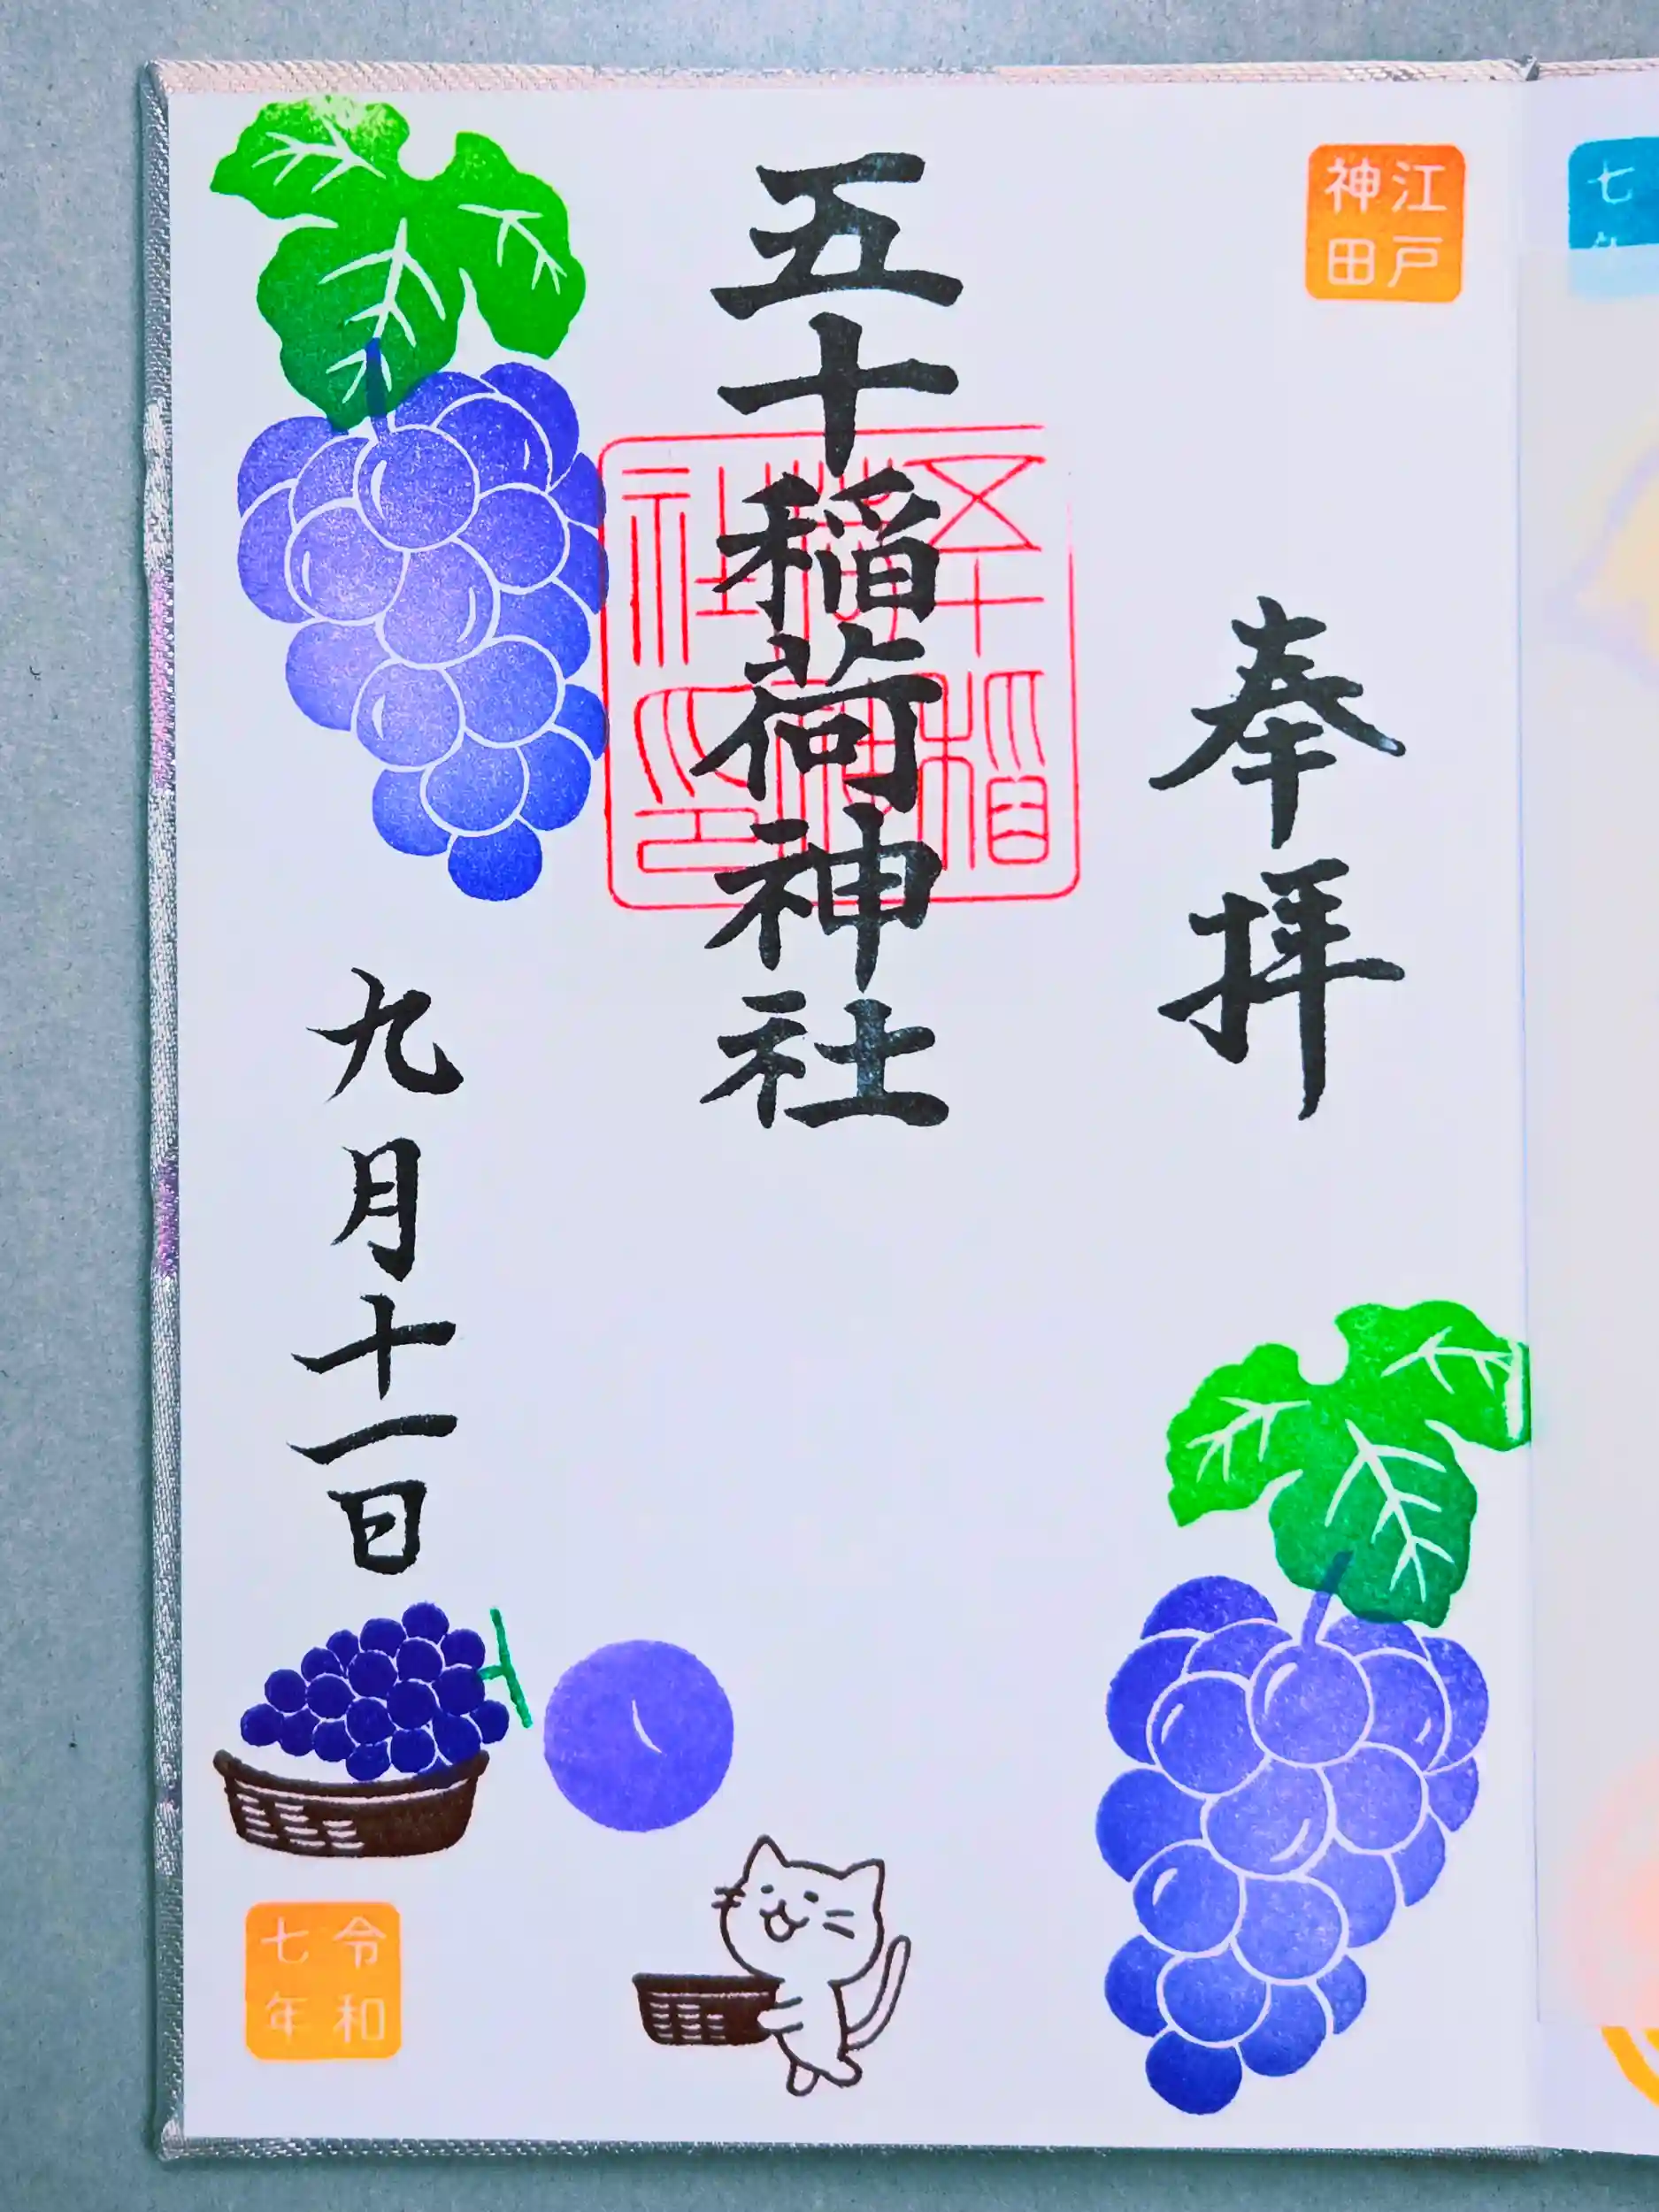 江戸
神田
奉拝
五十稲荷神社
五十稲
荷神社
社印
九月十一日
令和
七年
七